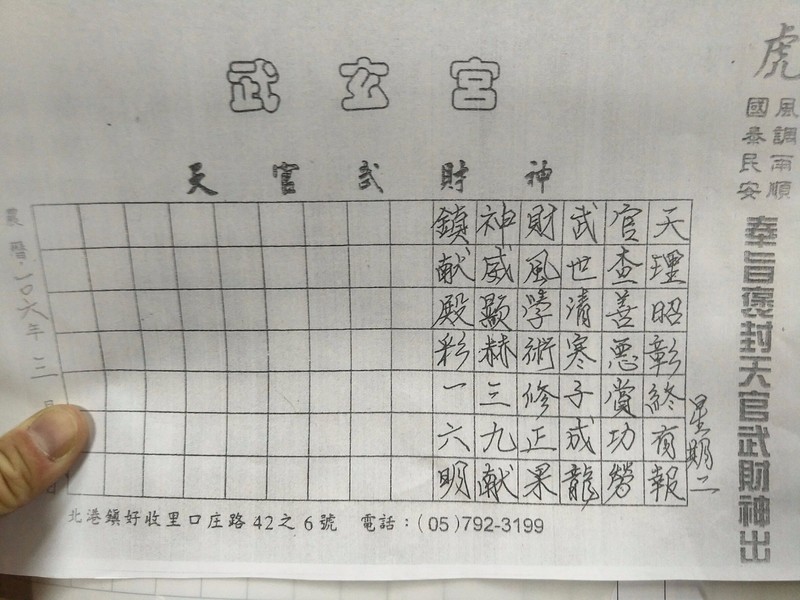 武玄宮
天官武財神
虎
風調雨順
國泰民安
奉旨褒封天官武財神出
星期二
天理昭彰終有報
官查善惡賞功勞
武世清寒子成龍
財風學術修正果
神威顯赫三九献
鎮献殿彩一六明
農曆一〇六年三月
北港鎮好收里口庄路42之6號 電話：(05)792-3199